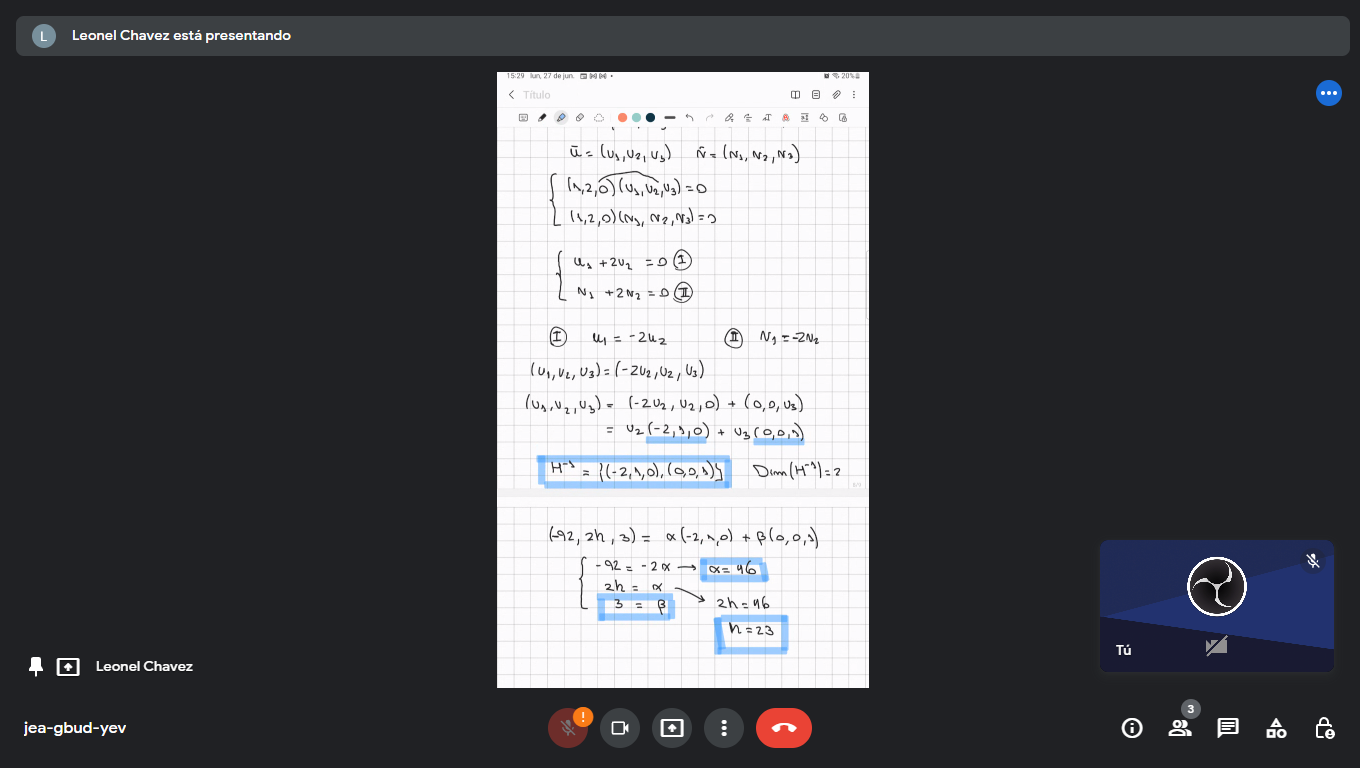 L Leonel Chavez está presentando
15:29 lun, 27 de jun. 20%
Título
ū = (u₁, u₂, u₃) v̄ = (v₁, v₂, v₃)
(1,2,0)(u₁,u₂,u₃) = 0
(1,2,0)(v₁, v₂, v₃) = 0
u₁ + 2u₂ = 0 Ⓘ
v₁ + 2v₂ = 0 Ⅱ
Ⓘ u₁ = -2u₂ Ⅱ v₁ = -2v₂
(u₁, u₂, u₃) = (-2u₂, u₂, u₃)
(u₁, u₂, u₃) = (-2u₂, u₂, 0) + (0, 0, u₃)
= u₂(-2,1,0) + u₃(0,0,1)
H⁻¹ = {(-2,1,0), (0,0,1)} Dim(H⁻¹) = 2
(-92, 2h, 3) = α(-2,1,0) + β(0,0,1)
-92 = -2α → α = 46
2h = α → 2h = 46
3 = β
h = 23
Tú
Leonel Chavez
jea-gbud-yev
!
3